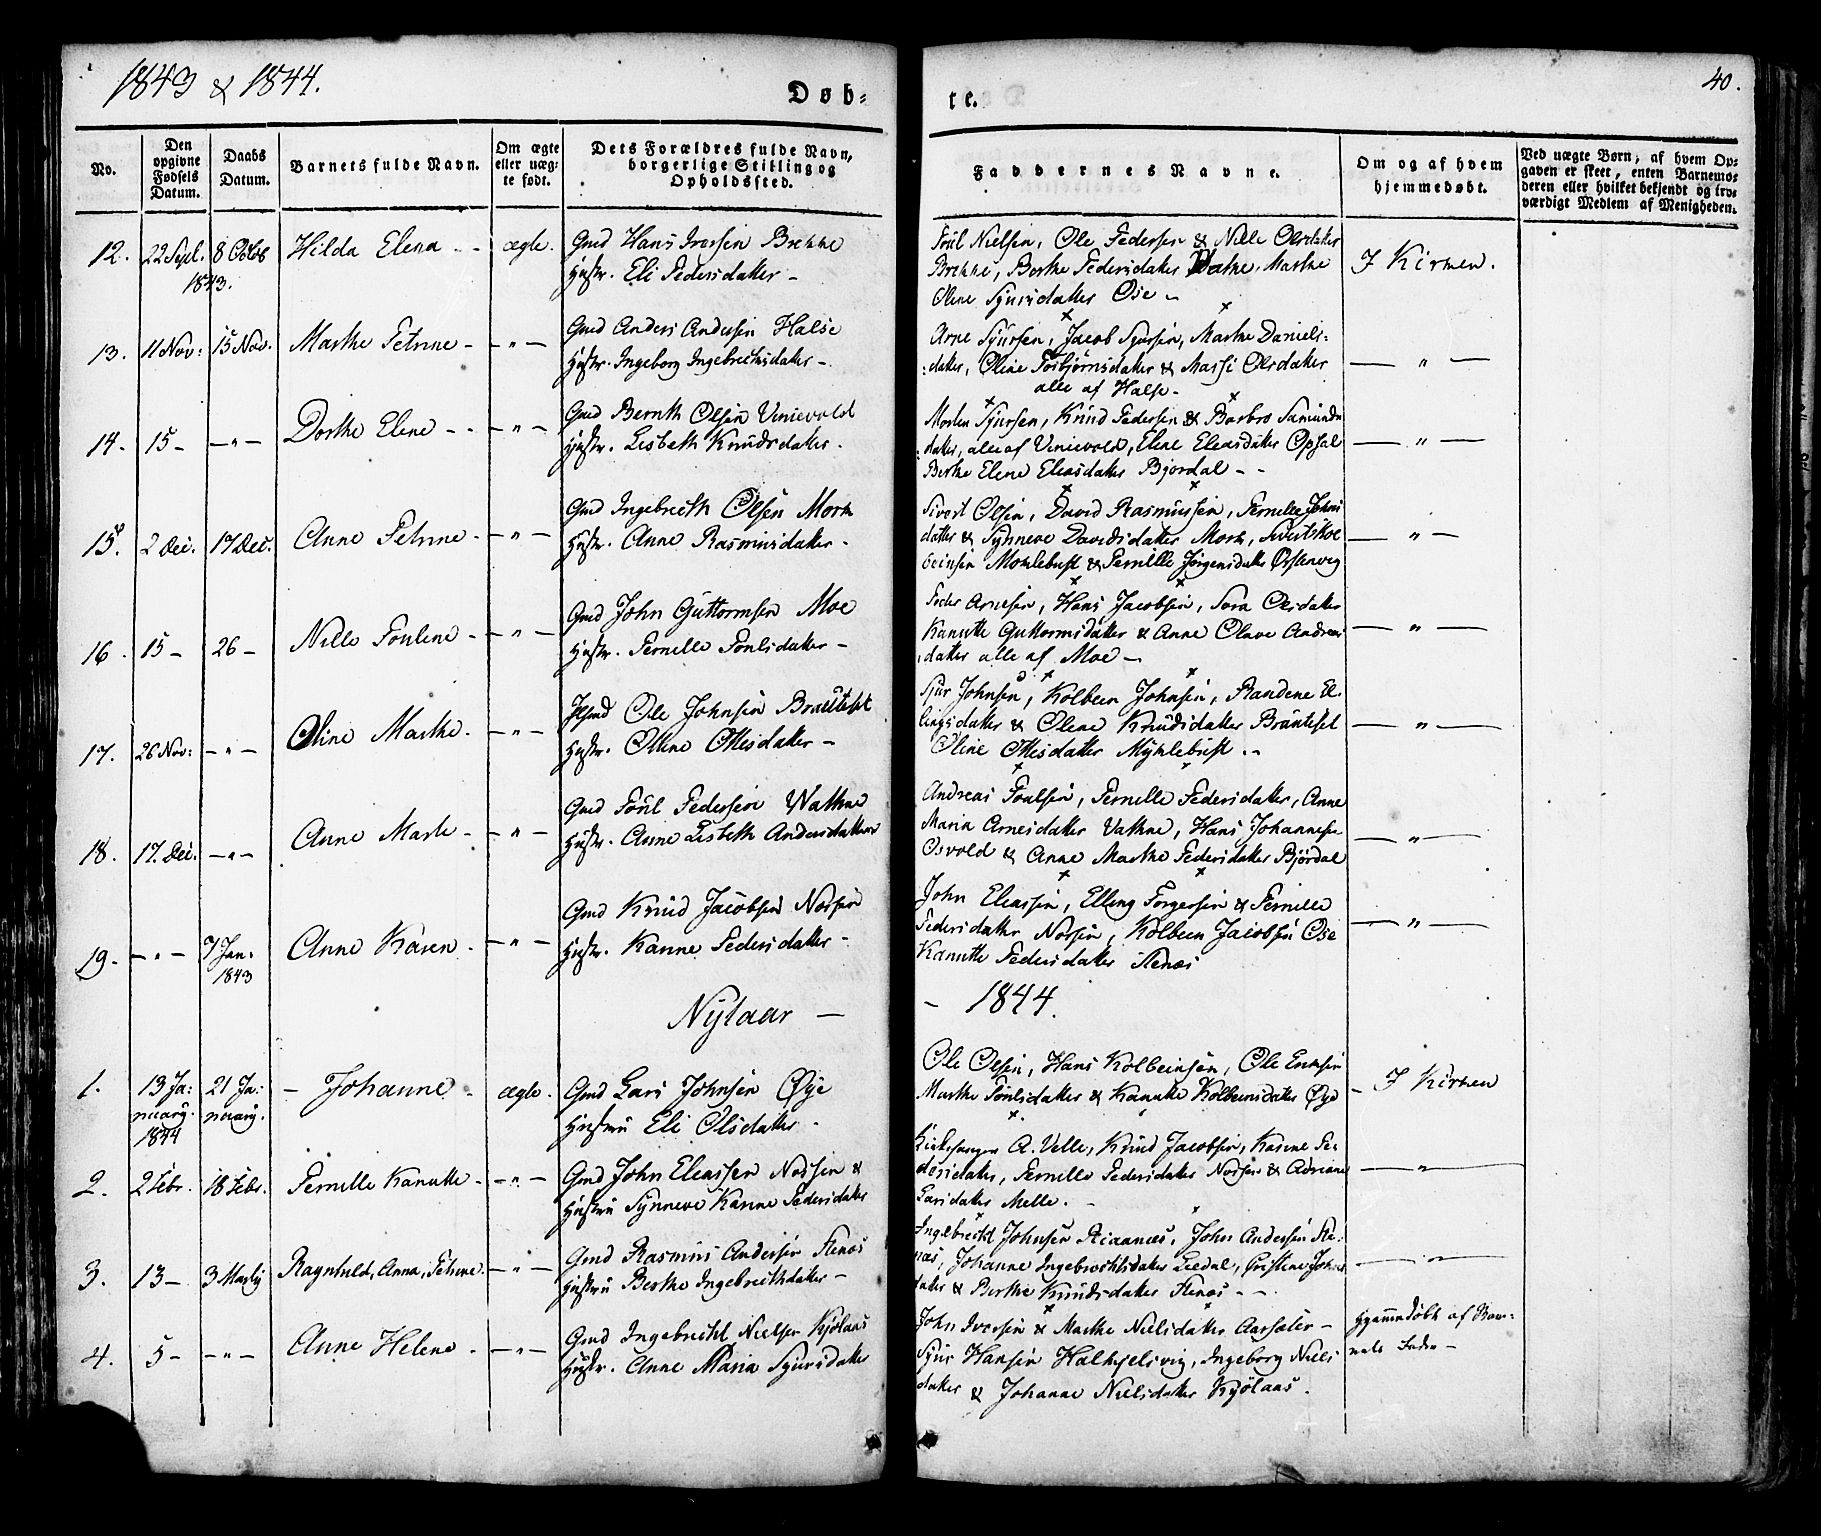 1843 & 1844.
Døb-
te.
40.
No.
Den
opgivne
Fødsels
Datum.
Daabs
Datum.
Barnets fulde Navn.
Om ægte
eller uæg-
te født.
Dets Forældres fulde Navn,
borgerlige Stilling og
Opholdssted.
Faddernes Navne.
Om og af hvem
hjemmedøbt.
Ved uægte Børn, af hvem Op-
gaven er skeet, enten Barnemo-
deren eller hvilket bekjendt og tro-
værdigt Medlem af Menigheden.
12. 22 Sept. 8 Octob Hilda Elena - - ægte. Gmd Hans Iversen Brekke
1843.
Hustr. Eli Pedersdatter -
Poul Nielsen, Ole Pedersen & Nille Olsdatter
Brekke, Berthe Pedersdatter Marthe
Oline Sjursdatter Øie -
I Kirken.
13. 11 Nov: 15 Nov. Marthe Petrine - - " - Gmd Anders Andersen Halse
Hustr. Ingeborg Ingebrethsdatter -
Arne Sjursen, Jacob Sjursen, Marthe Daniels:
:datter, Oline Torbjørnsdatter & Massi Olsdatter
alle af Halse -
- " -
14. 15 - - " - Dorthe Elene - - - " - Gmd Bernth Olsen Venievold
Hustr. Lisbeth Knudsdatter -
Morten Sjursen, Knud Pedersen & Barbro Samunds
:datter, alle af Venievold, Elene Eleasdatter Opsal
Berthe Elene Eleasdatter Bjordal - -
- " -
15. 2 Dec. 17 Dec. Anne Petrine - - " - Gmd Ingebreth Olsen Mork
Hustr. Anne Rasmusdatter -
Sivert Olsen, David Rasmussen, Pernille Johns
datter & Synneve Davidsdatter Mork, Sivert Kol
beinsen Moklebust & Pernille Jørgensdatter Østenvig
- " -
16. 15 - 26 - Nille Pouline - - " - Gmd John Guttormsen Moe
Hustr. Pernille Poulsdatter -
Peder Arnesen, Hans Jacobsen, Sara Olsdatter
Kanutte Guttormsdatter & Anne Olave Andreas
datter alle af Moe -
- " -
17. 26 Nov: - " - Oline Marthe. - " - Ole Johnsen Brauteset
Hustr. Oline Ottesdatter -
Sjur Johnsen, Kolbeen Johnsen, Randene El-
lingsdatter & Olene Knudsdatter Brauteset
Oline Ottesdatter Myklebust -
- " -
18. 17. Dec. - " - Anne Marte - - " - Gmd Poul Pedersen Wathne
Hustr. Anne Lisbeth Andersdatter
Andreas Poulsen, Pernille Pedersdatter, Anne
Maria Arnesdatter Vathne, Hans Johannesen
Osvold & Anne Marthe Pedersdatter Bjørdal
- " -
19. - " - 7 Jan: Anne Karen - - " - Gmd Knud Jacobsen Nossen
1843
Hustr. Kanne Pedersdatter -
John Eleassen, Elling Torgersen & Pernille
Pedersdatter Nossen, Kolbeen Jacobsen Øie
Kanutte Pedersdatter Stenæs
- " -
Nytaar -
- 1844.
1. 13 Ja: 21 Ja: - Johanne - ægte. Gmd Lars Johnsen Øye
nuary. nuary.
1844
Hustru Eli Olsdatter -
Ole Olsen, Hans Kolbeinsen, Ole Ericksen
Marthe Poulsdatter & Kanutte Kolbeensdatter Øye
- I Kirken
2. 2 Febr. 18 Febr. Pernille Kanutte - - " - Gmd John Eleassen Nossen &
Hustru Synneve Karine Pedersdatter
Kirkesanger A. Velle, Knud Jacobsen, Karine Pe-
dersdatter, Pernille Pedersdatter Nossen & Adriane
Larsdatter Melle -
- " -
3. 13 - 3 Martij Ragnhild, Anna, Petrine - " - Gmd Rasmus Andersen Stenæs
Hustru Berthe Ingebrethdatter -
Ingebrecht Johnsen John Andersen Ste-
næs, Johanne Ingebrechtsdatter Ledal, Christine Johns
datter & Berthe Knudsdatter Stenæs - -
- " -
4. 5 - - " - Anne Helene - - " - Gmd Ingebricht Nielsen Kjølaas
Hustr. Anne Maria Sjursdatter
John Iversen & Marthe Nielsdatter Aarsæter -
Sjur Hansen Halkjelsvig, Ingeborg Niels
datter & Johanne Nielsdatter Kjølaas.
Hjemmedøbt af Bar-
nets Fader -